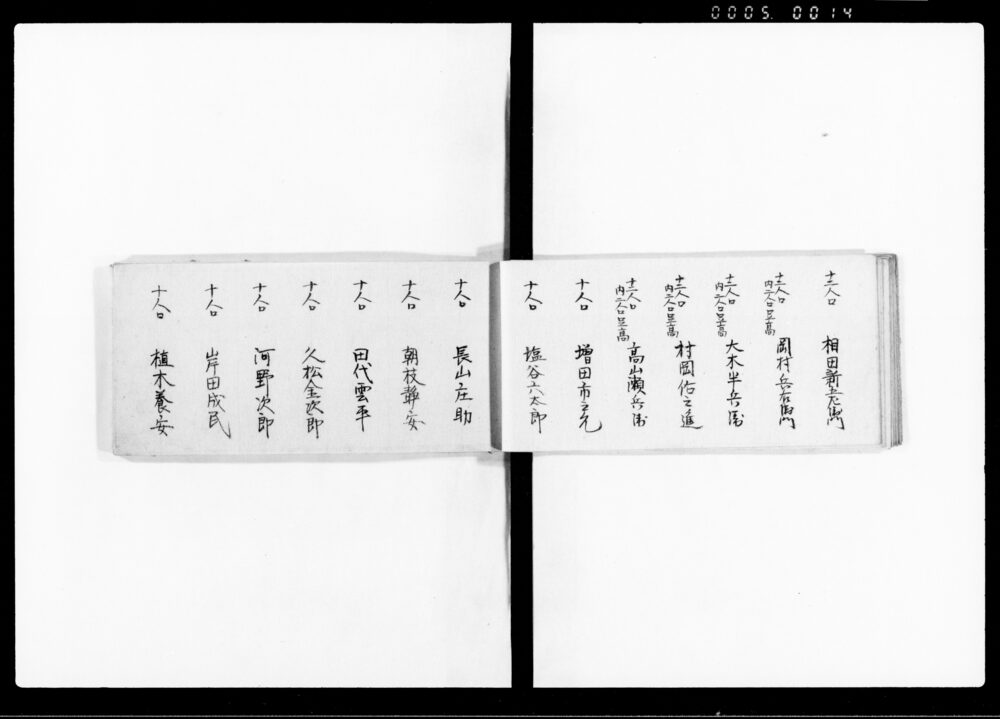 0005. 0014
十二人口 相田新五右衛門
十二人口 内二人口足高 岡村兵右衛門
十二人口 内二人口足高 大木半兵衛
十二人口 内二人口足高 村岡佐之進
十二人口 内二人口足高 高山瀬兵衛
十人口 増田市之允
十人口 塩谷六太郎
十人口 長山庄助
十人口 朝枝静安
十人口 田代雲平
十人口 久松金次郎
十人口 河野次郎
十人口 岸田成民
十人口 植木養安